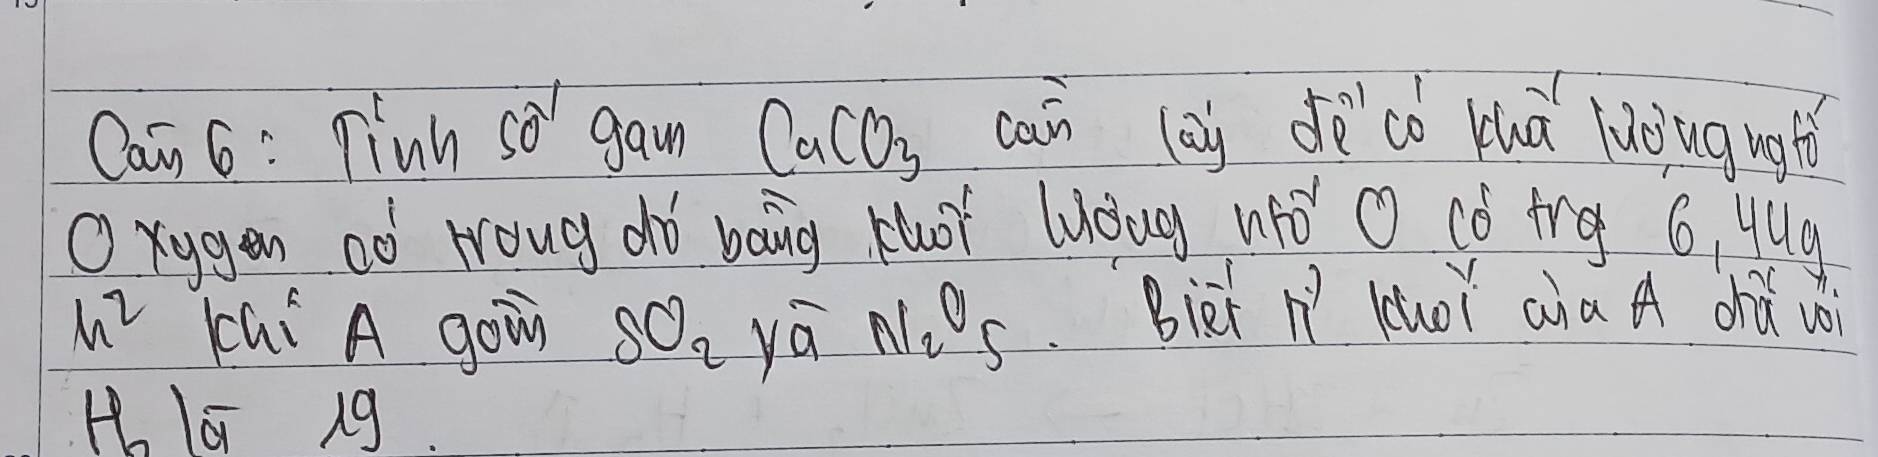 Câu 6: Tính số gam CaCO3 cần lấy để có khối lượng ngtố
Oxygen có trong đó bằng khối lượng ntố O có trg 6,44g
h² khí A gồm SO2 và N2O5. Biết tỉ khối của A đối với
H2 là 19.